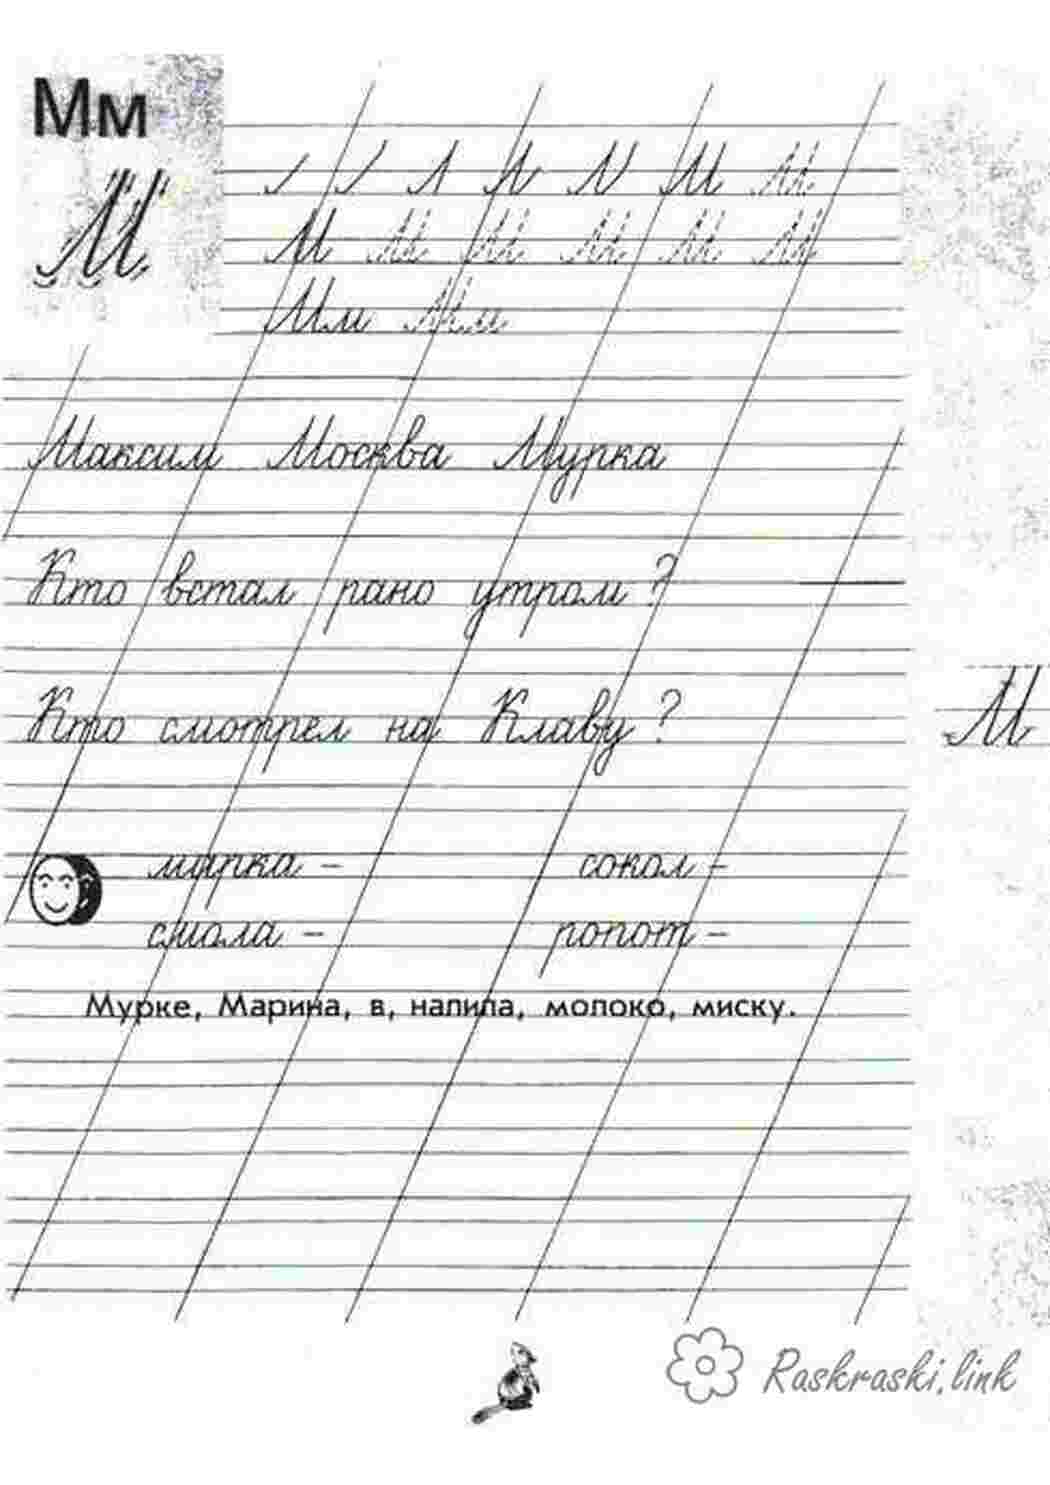 Мм
М
М
М М М М М М
Мм Мм
Максим Москва Мурка
Кто встал рано утром?
Кто смотрел на Клаву?
М
мурка – сокол –
смола – ропот –
Мурке, Марина, в, налила, молоко, миску.
Raskraski.link